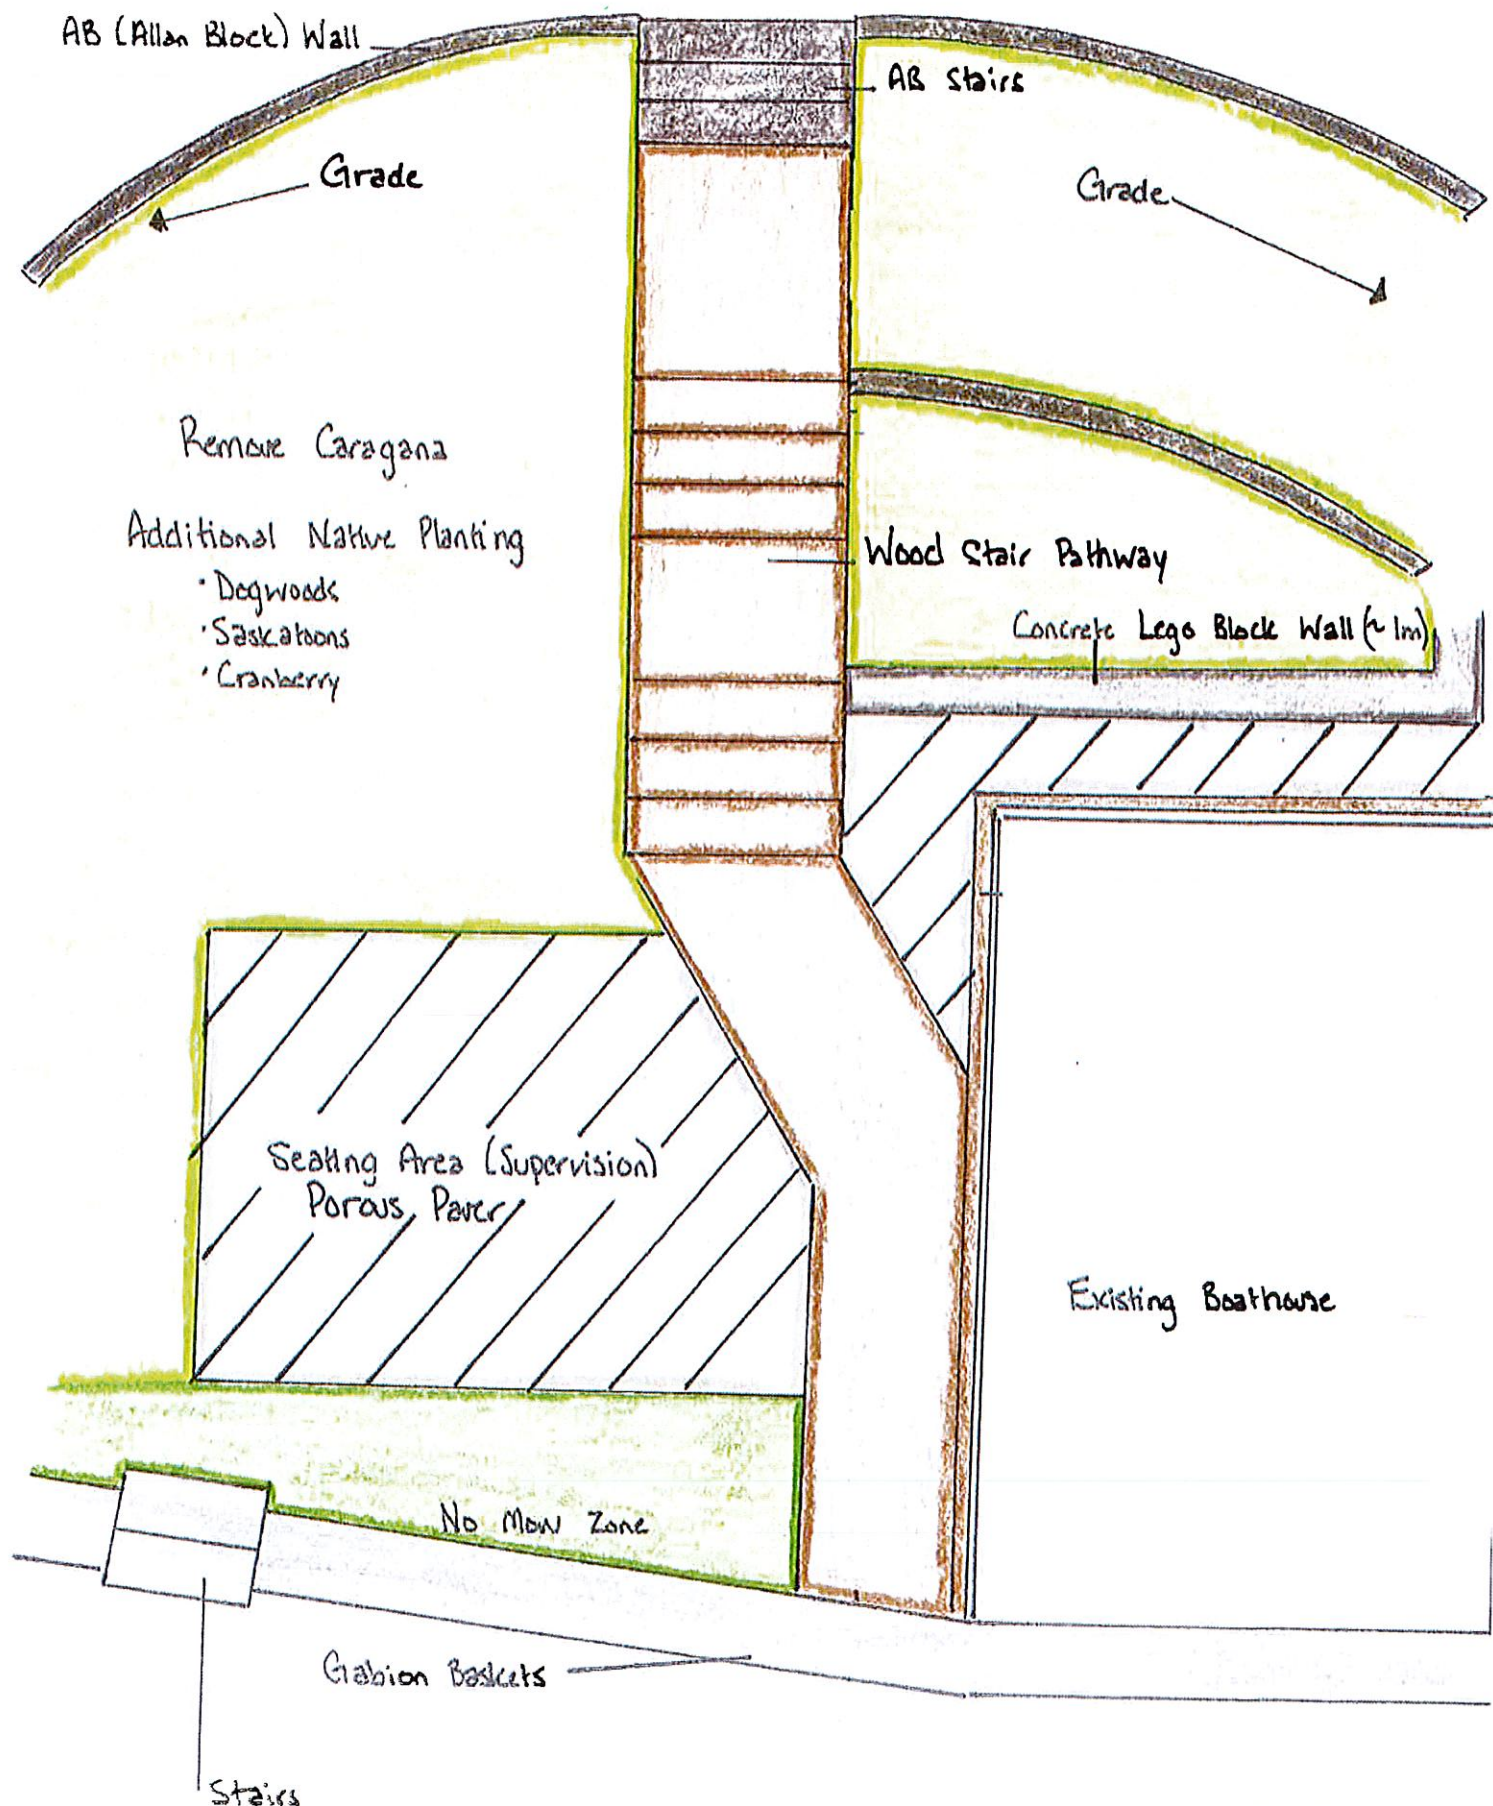 AB (Allan Block) Wall
AB Stairs
Grade
Grade
Remove Caragana
Additional Native Planting
• Dogwoods
• Saskatoons
• Cranberry
Wood Stair Pathway
Concrete Lego Block Wall (~ 1m)
Seating Area (Supervision)
Porous Paver
Existing Boathouse
No Mow Zone
Gabion Baskets
Stairs